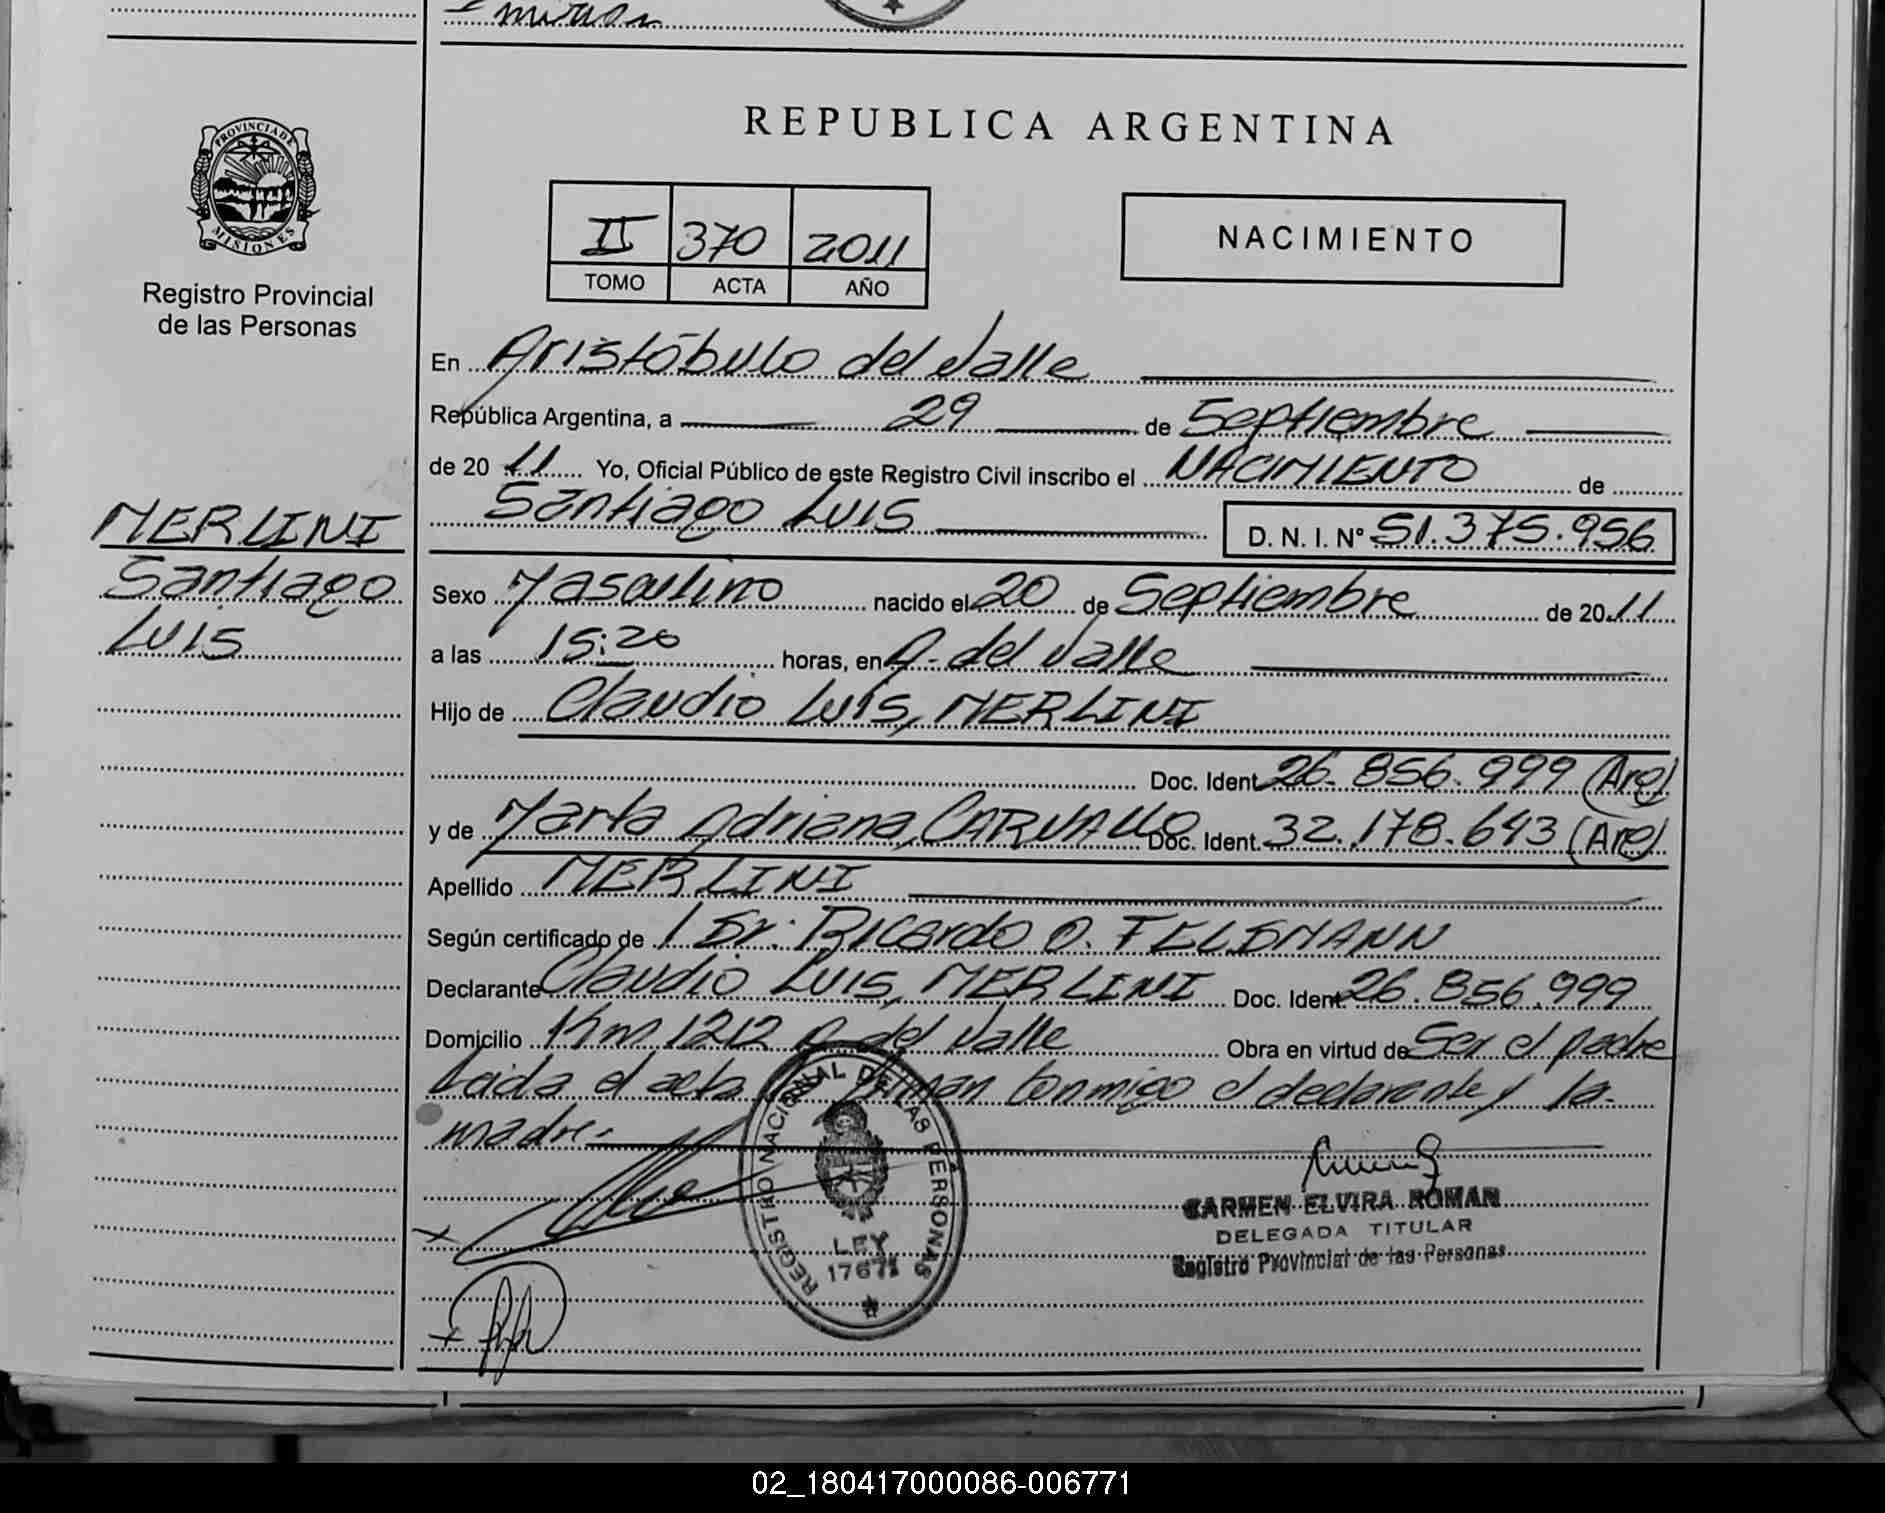 REPUBLICA ARGENTINA
PROVINCIA DE MISIONES
Registro Provincial
de las Personas
II 370 2011
TOMO ACTA AÑO
NACIMIENTO
En Aristóbulo del Valle
República Argentina, a 29 de Septiembre
de 2011 Yo, Oficial Público de este Registro Civil inscribo el NACIMIENTO de
Santiago Luis D. N. I. Nº 51.375.956
MERLINI
Santiago
Luis
Sexo Masculino nacido el 20 de Septiembre de 2011
a las 15:20 horas, en A. del Valle
Hijo de Claudio Luis, MERLINI
Doc. Ident 26.856.999 (Arg)
y de Marta Adriana, CARVALLO Doc. Ident. 32.178.643 (Arg)
Apellido MERLINI
Según certificado de Dr. Ricardo O. FELDMANN
Declarante Claudio Luis, MERLINI Doc. Ident. 26.856.999
Domicilio Km 1212 A. del Valle Obra en virtud de Ser el padre
Leida el acta la firman conmigo el declarante y la
madre.-
REGISTRO NACIONAL DE LAS PERSONAS
LEY
17671
CARMEN ELVIRA ROMAN
DELEGADA TITULAR
Registro Provincial de las Personas
02_180417000086-006771